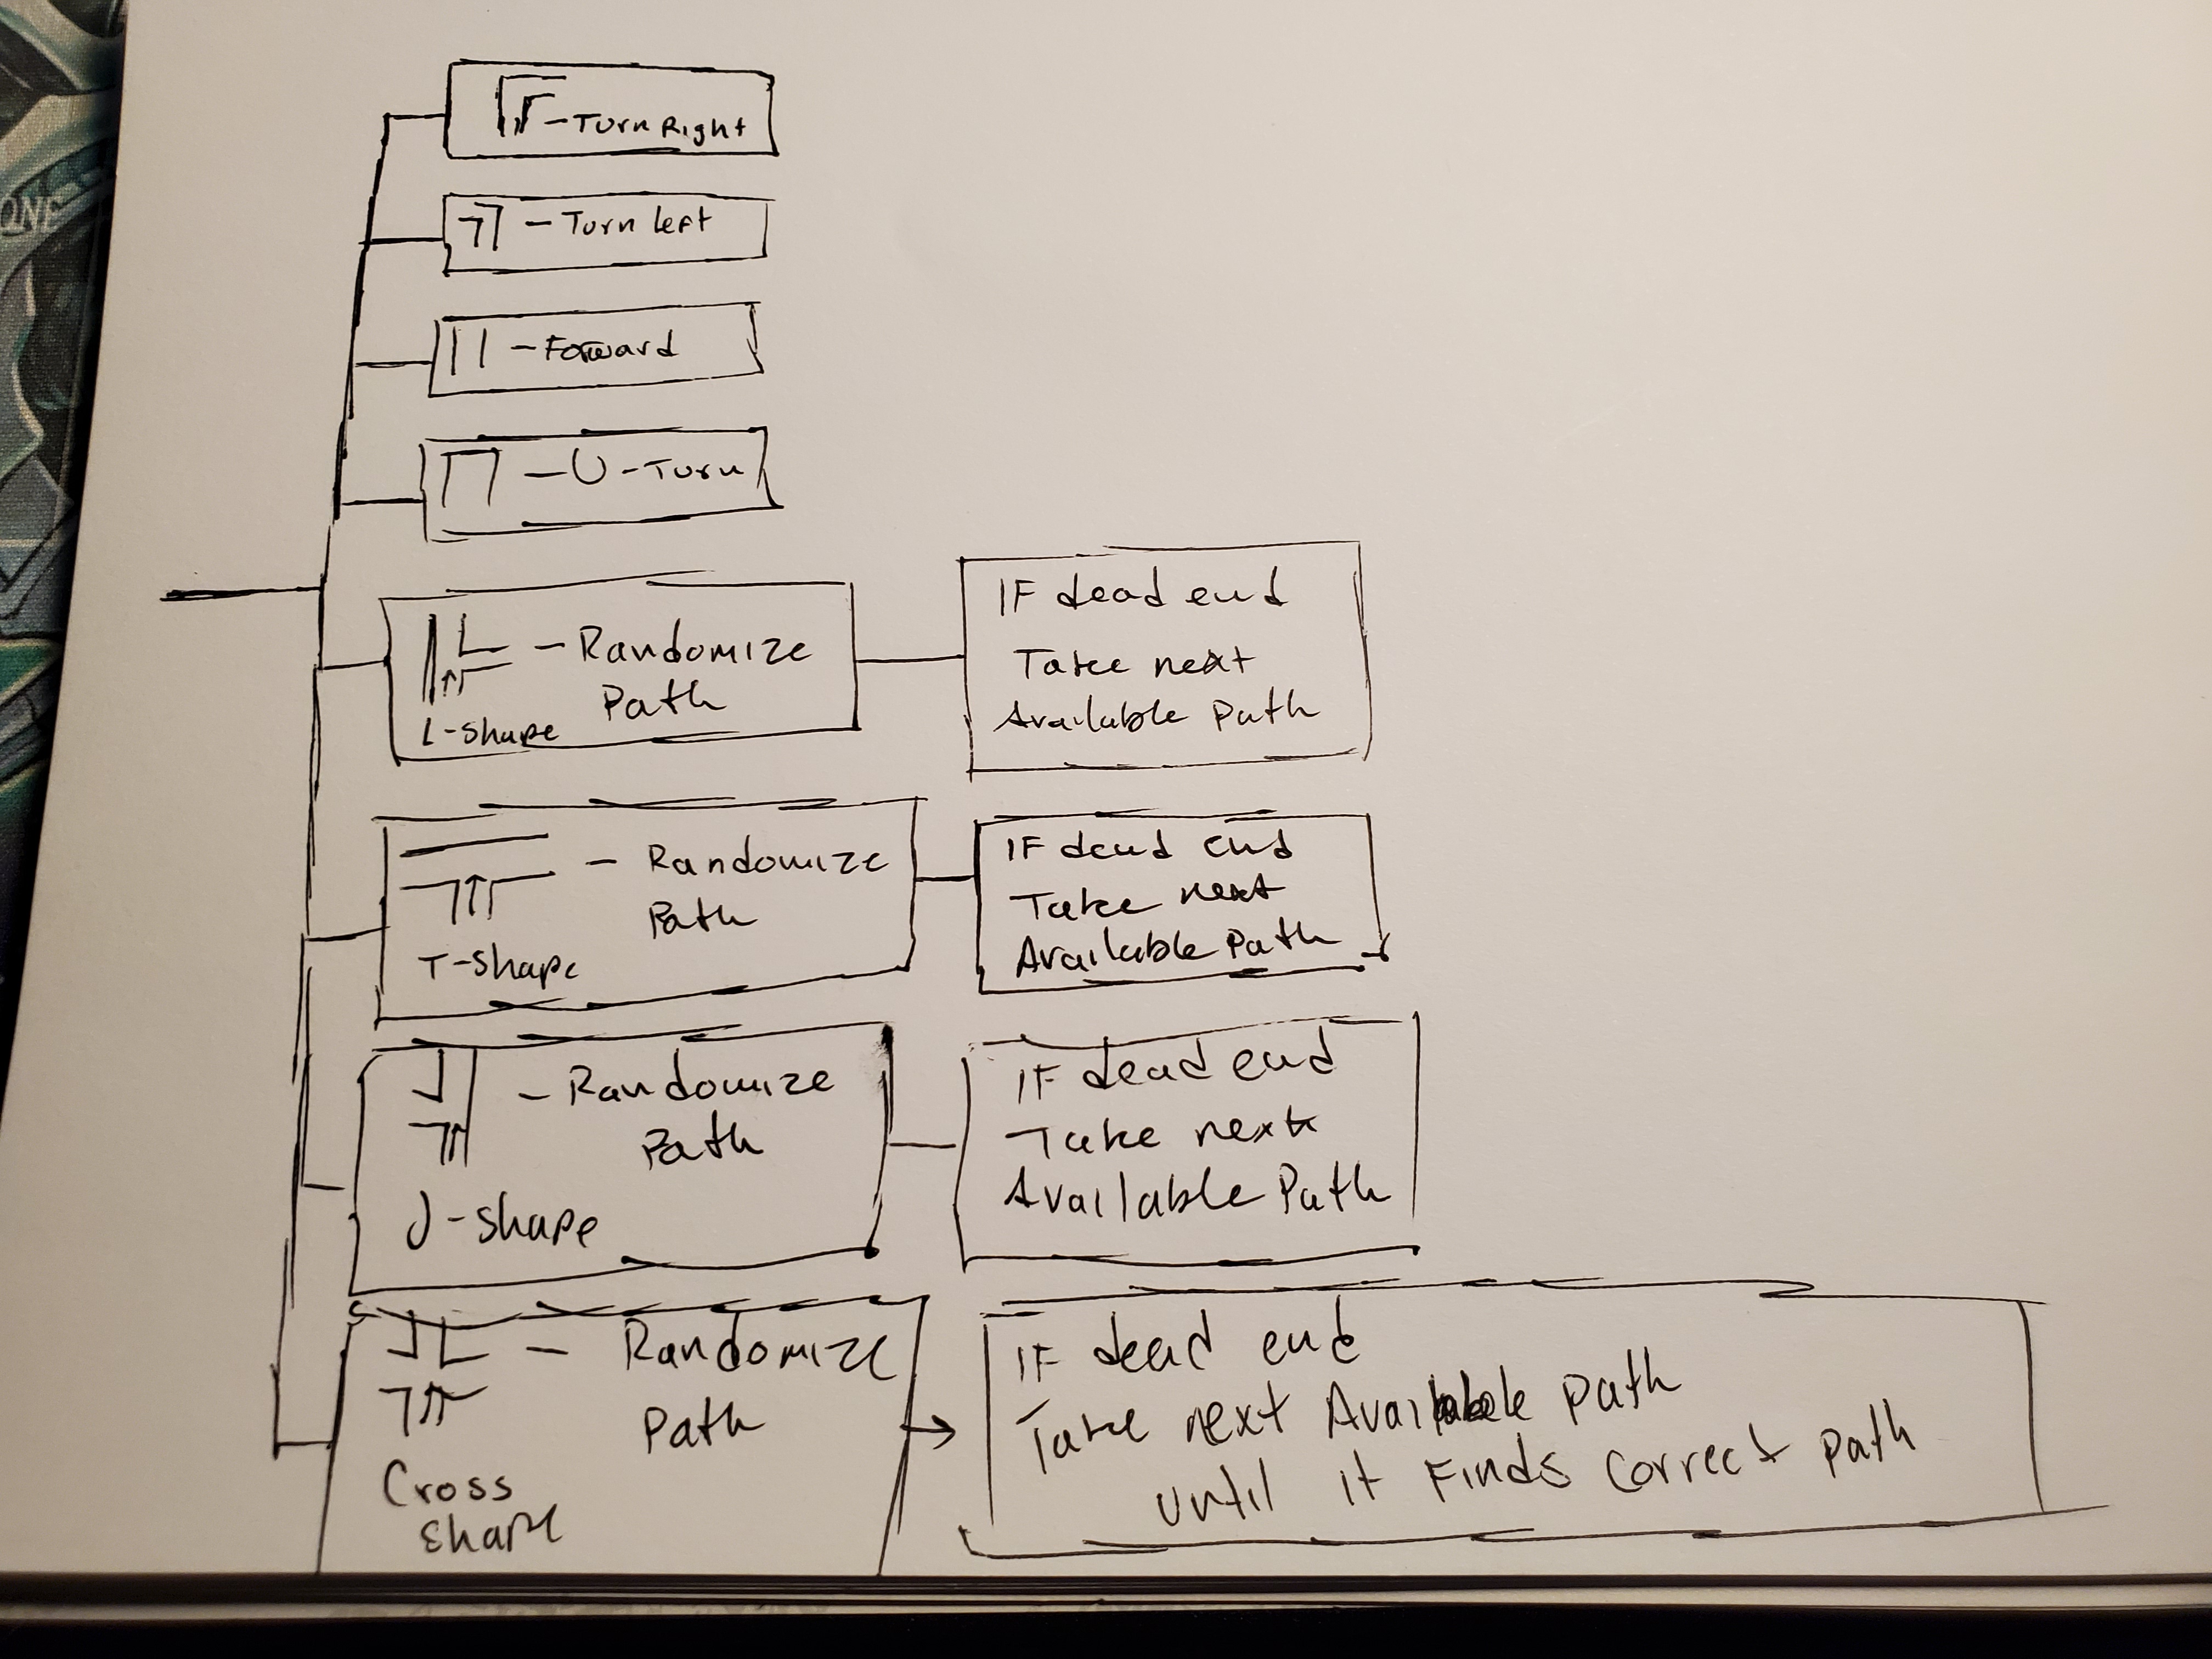 - Turn Right
- Turn Left
- Forward
- U-Turn
- Randomize
Path
L-shape
IF dead end
Take next
Available path
- Randomize
Path
T-shape
IF dead end
Take next
Available Path
- Randomize
Path
J-shape
IF dead end
Take next
Available Path
- Randomize
Path
Cross
shape
IF dead end
Take next Available path
until it Finds correct path